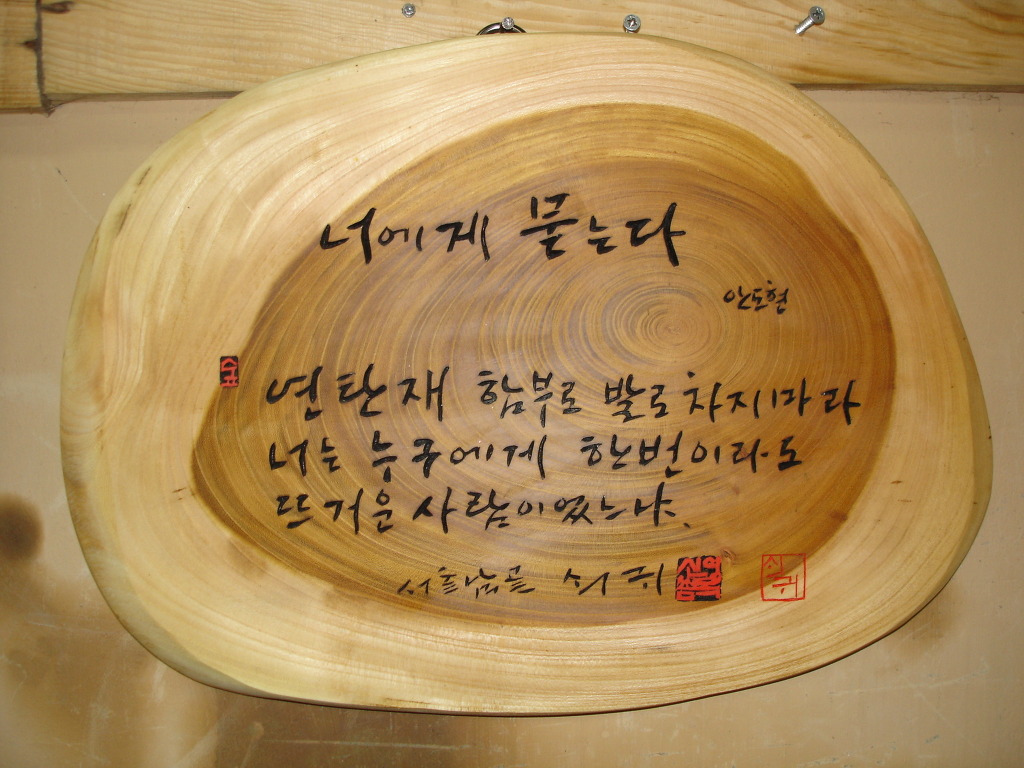 너에게 묻는다
안도현
연탄재 함부로 발로 차지마라
너는 누구에게 한번이라도
뜨거운 사람이었느냐.
쇠귀
쇠귀